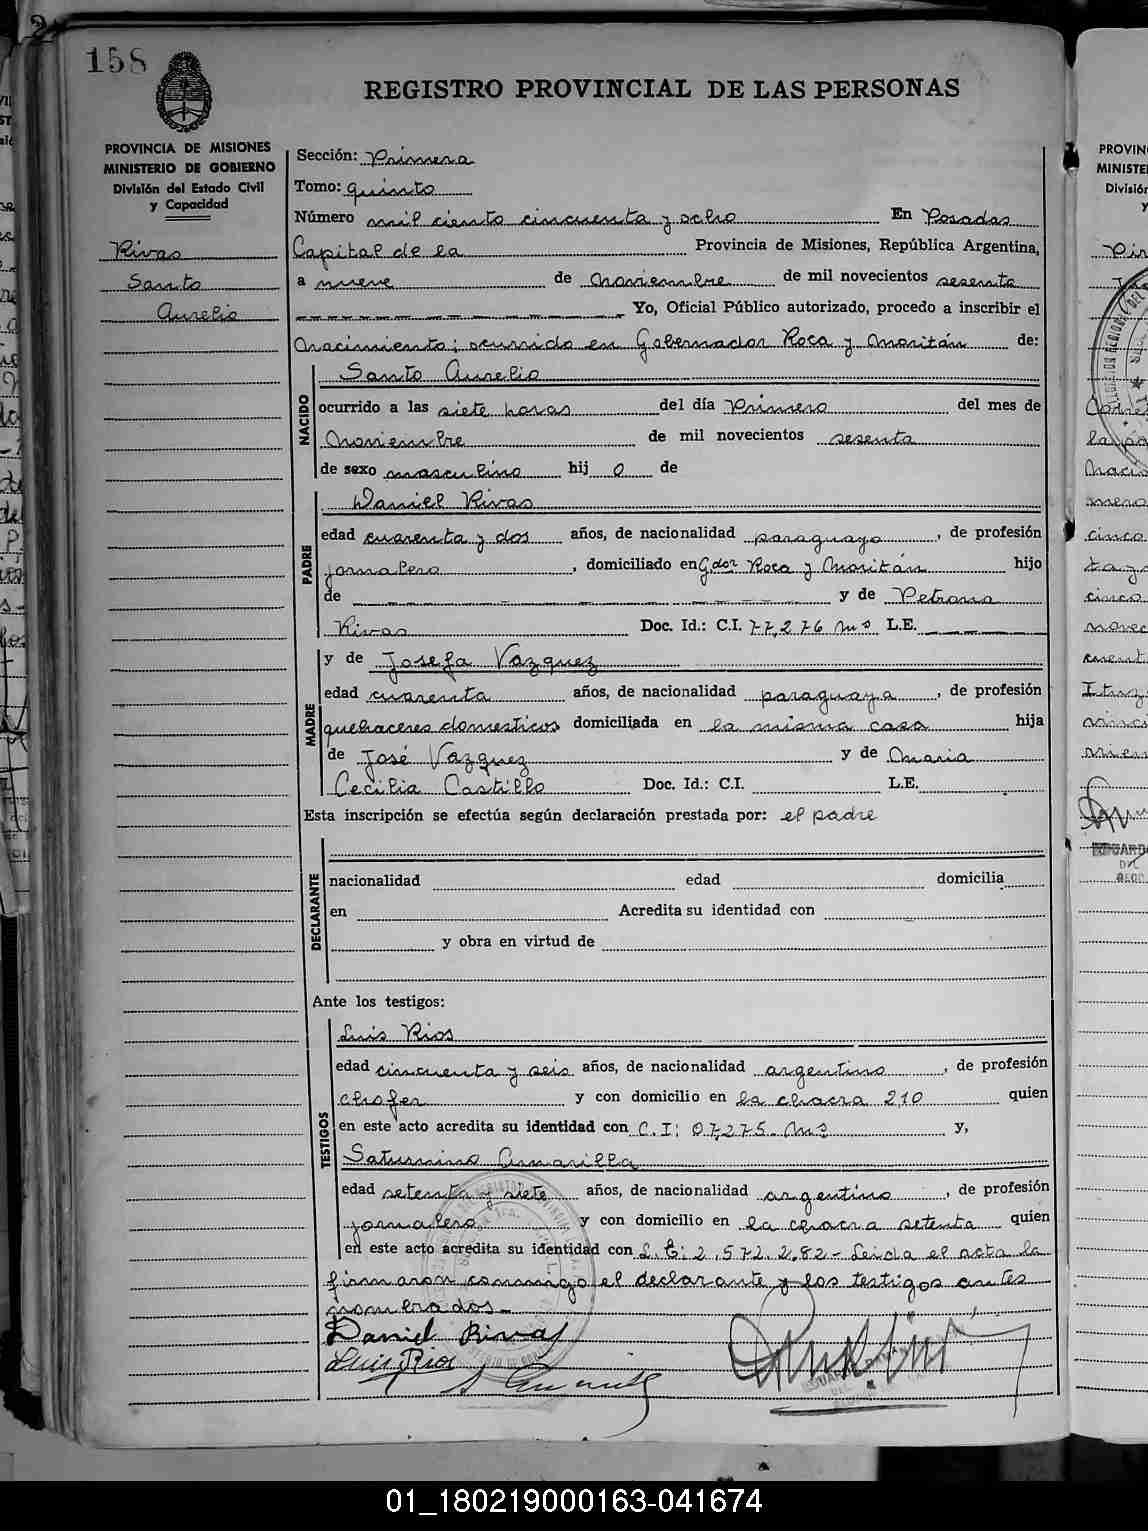 158
REGISTRO PROVINCIAL DE LAS PERSONAS
PROVINCIA DE MISIONES
MINISTERIO DE GOBIERNO
División del Estado Civil
y Capacidad
Rivas
Santo
Aurelio
Sección: Primera
Tomo: quinto
Número mil ciento cincuenta y ocho En Posadas
Capital de la Provincia de Misiones, República Argentina,
a nueve de Noviembre de mil novecientos sesenta
Yo, Oficial Público autorizado, procedo a inscribir el
Nacimiento; ocurrido en Gobernador Roca y Moritán de:
NACIDO
Santo Aurelio
ocurrido a las siete horas del día Primero del mes de
Noviembre de mil novecientos sesenta
de sexo masculino hij o de
PADRE
Daniel Rivas
edad cuarenta y dos años, de nacionalidad paraguayo, de profesión
jornalero, domiciliado en Gdor Roca y Moritán hijo
de y de Petrona
Rivas Doc. Id.: C.I. 77,276 Mns L.E.
MADRE
y de Josefa Vazquez
edad cuarenta años, de nacionalidad paraguaya, de profesión
quehaceres domesticos domiciliada en la misma casa hija
de José Vazquez y de Maria
Cecilia Castillo Doc. Id.: C.I. L.E.
Esta inscripción se efectúa según declaración prestada por: el padre
DECLARANTE
nacionalidad edad domicilia
en Acredita su identidad con
y obra en virtud de
Ante los testigos:
TESTIGOS
Luis Rios
edad cincuenta y seis años, de nacionalidad argentino, de profesión
chofer y con domicilio en la chacra 210 quien
en este acto acredita su identidad con C.I: 07,275. Mns y,
Saturnino Amarilla
edad setenta y siete años, de nacionalidad argentino, de profesión
jornalero y con domicilio en la chacra setenta quien
en este acto acredita su identidad con L.E: 2,572,282- Leida el acta la
firmaron conmigo el declarante y los testigos antes
nombrados-
Daniel Rivas
Luis Rios
01_180219000163-041674